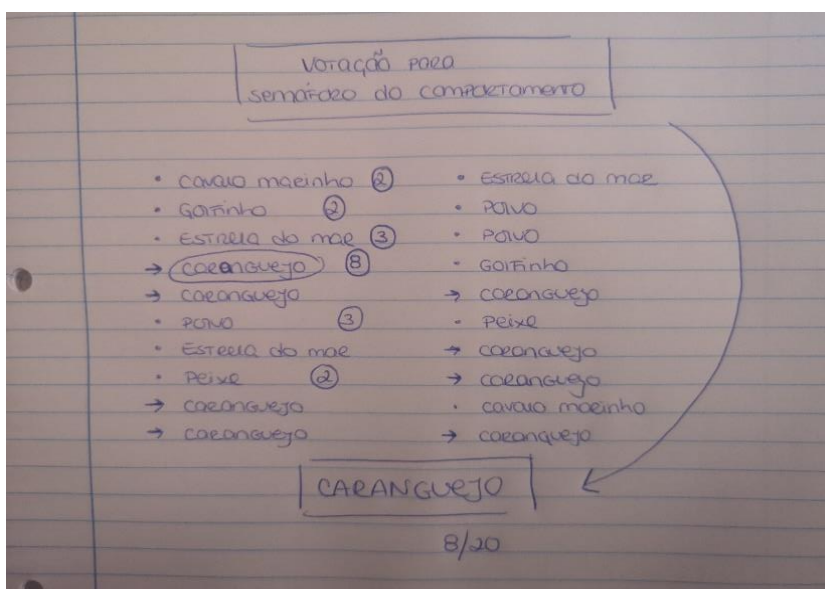 Votação para
semáforo do comportamento
• cavalo marinho ②
• Golfinho ②
• ESTRELA do mar ③
→ caranguejo ⑧
→ caranguejo
• POLVO ③
• ESTRELA do mar
• Peixe ②
→ caranguejo
→ caranguejo
• ESTRELA do mar
• POLVO
• POLVO
• GOLFinho
→ caranguejo
• Peixe
→ caranguejo
→ caranguejo
• cavalo marinho
→ caranguejo
CARANGUEJO
8/20